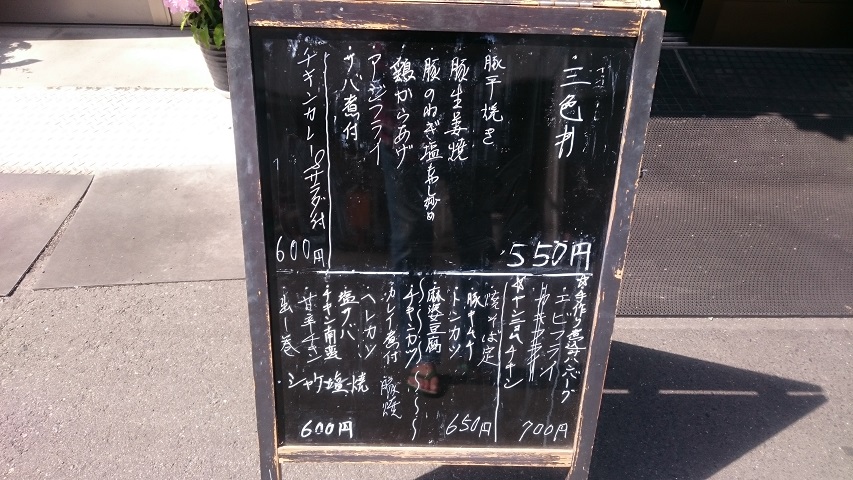 ・三色丼
豚平焼き
・豚生姜焼
・豚のねぎ塩だれし炒め
・鶏からあげ
・アジフライ
・サバ煮付
550円
・チキンカレー サラダ付
600円
☆手作り煮込ハンバーグ
・エビフライ
☆ヤンニョムチキン
700円
・焼そば定
・豚キムチ
・トンカツ
・麻婆豆腐
650円
・チキンカツ
・カレイ煮付
・ヘレカツ
・塩サバ
・チキン南蛮
・甘辛チキン
・出し巻
・シャケ塩焼
豚焼
600円